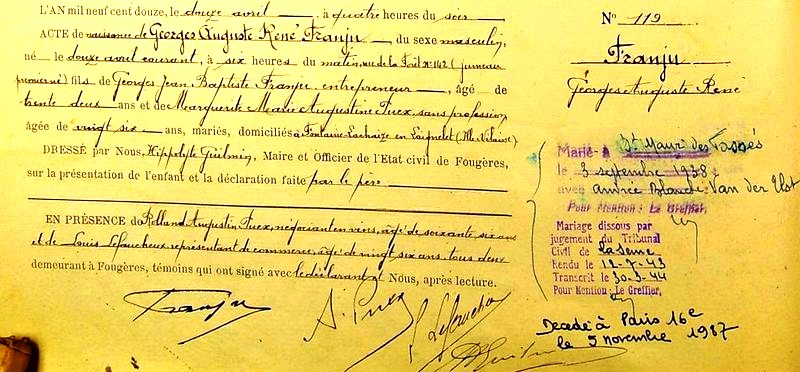 L'AN mil neuf cent douze, le douze avril, à quatre heures du soir
ACTE de naissance de Georges Auguste René Franju, du sexe masculin,
né le douze avril courant, à six heures du matin, rue de la Forêt n° 142 (jumeau
premier né) fils de Georges Jean Baptiste Franju, entrepreneur, âgé de
trente deux ans et de Marguerite Marie Augustine Tuex, sans profession,
âgée de vingt six ans, mariés, domiciliés à Fontaine Lachaize en (Ille Vilaine).
DRESSÉ par Nous, Hippolyte Guilmin, Maire et Officier de l'Etat civil de Fougères,
sur la présentation de l'enfant et la déclaration faite par le père
EN PRÉSENCE de Rolland Augustin Tuex, négociant en vins, âgé de soixante six ans
et de Louis Lefoucheux, représentant de commerce, âgé de vingt six ans, tous deux
demeurant à Fougères, témoins qui ont signé avec le déclarant et Nous, après lecture.
Franju
A. Tuex
N° 119
Franju
Georges Auguste René
Marié à St Maur des Fossés
le 3 septembre 1938
avec Andrée Blanche Van der Elst
Pour Mention: Le Greffier,
Mariage dissous par
jugement du Tribunal
Civil de la Seine
Rendu le 12-7-43
Transcrit le 30-3-44
Pour Mention: Le Greffier,
Décédé à Paris 16e
le 5 novembre 1987